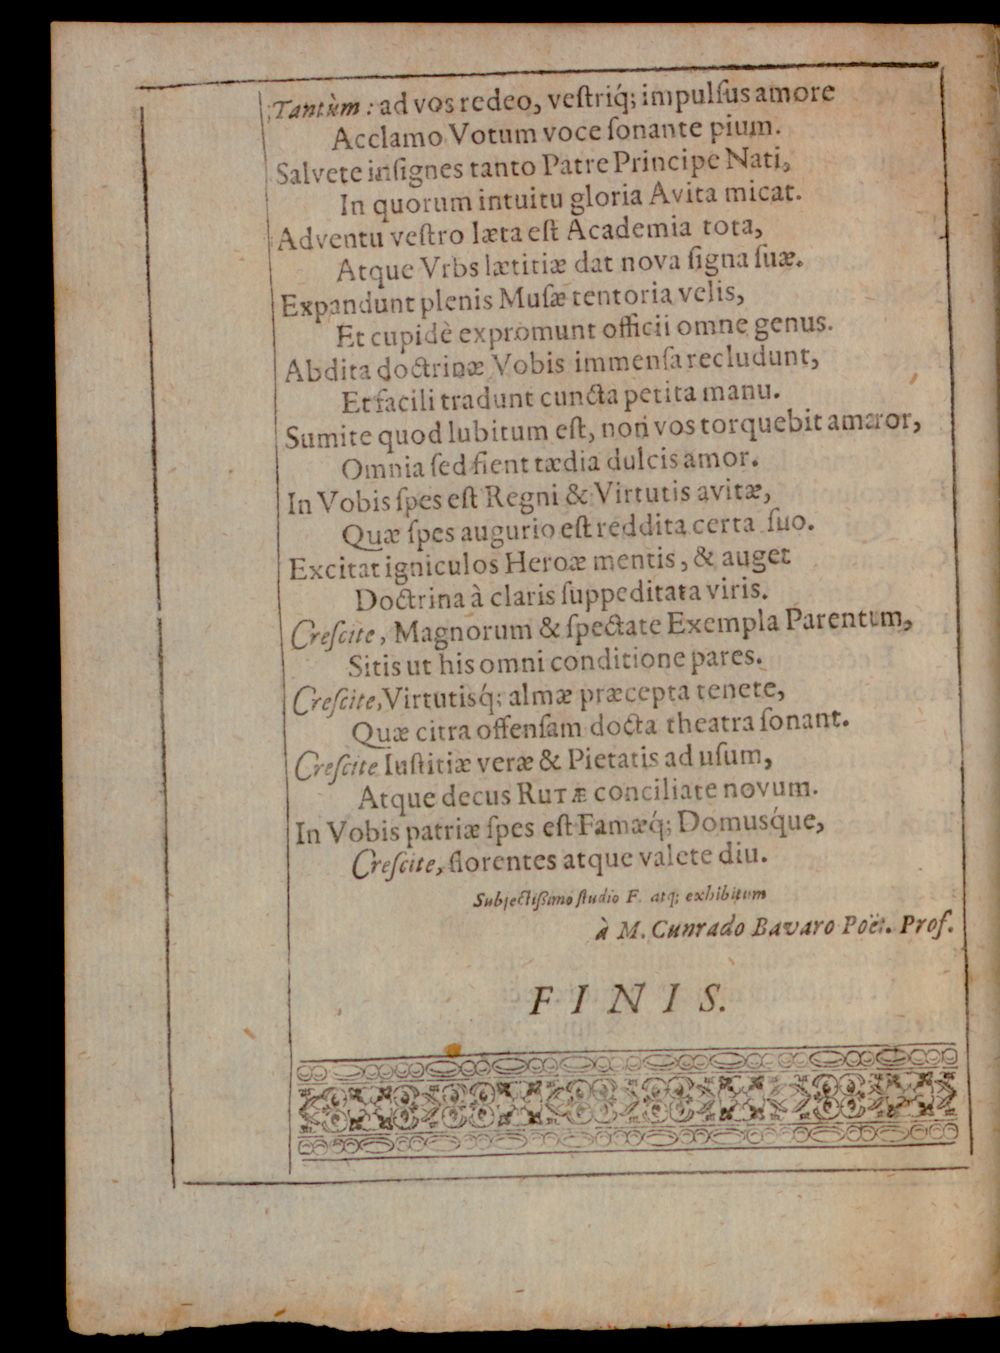 Tantùm: ad vos redeo, veſtriq́; impulſus amore
Acclamo Votum voce ſonante pium.
Salvete inſignes tanto Patre Principe Nati,
In quorum intuitu gloria Avita micat.
Adventu veſtro læta eſt Academia tota,
Atque Vrbs lætitiæ dat nova ſigna ſuæ.
Expandunt plenis Muſæ tentoria velis,
Et cupidè expromunt officii omne genus.
Abdita doctrinæ Vobis immenſa recludunt,
Et facili tradunt cuncta petita manu.
Sumite quod lubitum eſt, non vos torquebit amaror,
Omnia ſed fient tædia dulcis amor.
In Vobis ſpes eſt Regni & Virtutis avitæ,
Quæ ſpes augurio eſt reddita certa ſuo.
Excitat igniculos Heroæ mentis, & auget
Doctrina à claris ſuppeditata viris.
Creſcite, Magnorum & ſpectate Exempla Parentum,
Sitis ut his omni conditione pares.
Creſcite, Virtutisq́; almæ præcepta tenete,
Quæ citra offenſam docta theatra ſonant.
Creſcite Iuſtitiæ veræ & Pietatis ad uſum,
Atque decus RUTÆ conciliate novum.
In Vobis patriæ ſpes eſt Famæq́; Domusq́ue,
Creſcite, florentes atque valete diu.
Subjectißimo ſtudio F. atq; exhibitum
à M. Cunrado Bavaro Poët. Prof.
FINIS.